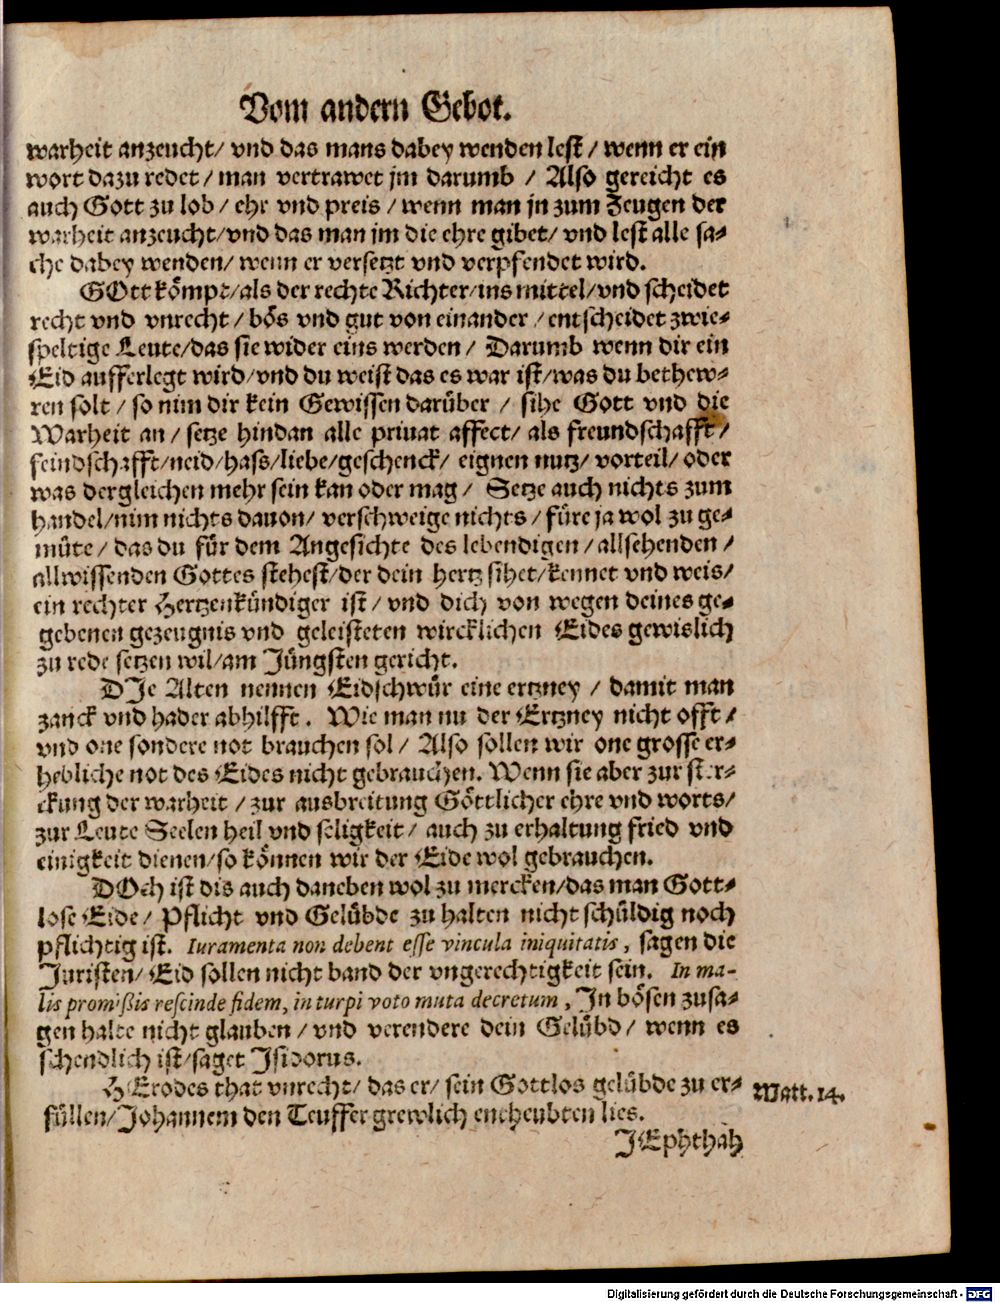 Vom andern Gebot.
warheit anzeucht/ vnd das mans dabey wenden lest/ wenn er ein
wort dazu redet/ man vertrawet jm darumb / Also gereicht es
auch Gott zu lob/ ehr vnd preis/ wenn man jn zum Zeugen der
warheit anzeucht/vnd das man jm die ehre gibet/ vnd lest alle sa⸗
che dabey wenden/ wenn er versetzt vnd verpfendet wird.
GOtt kömpt/als der rechte Richter/ins mittel/vnd scheidet
recht vnd vnrecht/ bös vnd gut von einander/ entscheidet zwie⸗
speltige Leute/das sie wider eins werden/ Darumb wenn dir ein
Eid aufferlegt wird/vnd du weist das es war ist/was du bethew⸗
ren solt/ so nim dir kein Gewissen darüber/ sihe Gott vnd die
Warheit an/ setze hindan alle priuat affect/ als freundschafft/
feindschafft/neid/hass/liebe/geschenck/ eignen nutz/ vorteil/ oder
was dergleichen mehr sein kan oder mag/ Setze auch nichts zum
handel/nim nichts dauon/ verschweige nichts/ füre ja wol zu ge⸗
müte/ das du für dem Angesichte des lebendigen/allsehenden/
allwissenden Gottes stehest/der dein hertz sihet/kennet vnd weis/
ein rechter Hertzenkündiger ist/ vnd dich von wegen deines ge⸗
gebenen gezeugnis vnd geleisteten wircklichen Eides gewislich
zu rede setzen wil/am Jüngsten gericht.
DJe Alten nennen Eidschwür eine ertzney/ damit man
zanck vnd hader abhilfft. Wie man nu der Ertzney nicht offt/
vnd one sondere not brauchen sol/ Also sollen wir one grosse er⸗
hebliche not des Eides nicht gebrauchen. Wenn sie aber zur ster⸗
ckung der warheit/ zur ausbreitung Göttlicher ehre vnd worts/
zur Leute Seelen heil vnd seligkeit/ auch zu erhaltung fried vnd
einigkeit dienen/so können wir der Eide wol gebrauchen.
DOch ist dis auch daneben wol zu mercken/das man Gott⸗
lose Eide/ Pflicht vnd Gelübde zu halten nicht schüldig noch
pflichtig ist. Iuramenta non debent esse vincula iniquitatis, sagen die
Juristen/ Eid sollen nicht band der vngerechtigkeit sein. In ma-
lis promißis rescinde fidem, in turpi voto muta decretum, Jn bösen zusa⸗
gen halte nicht glauben/ vnd verendere dein Gelübd/ wenn es
schendlich ist/saget Jsidorus.
HErodes that vnrecht/ das er/ sein Gottlos gelübde zu er⸗
Matt. 14.
füllen/Johannem den Teuffer grewlich entheubten lies.
JEphthah
Digitalisierung gefördert durch die Deutsche Forschungsgemeinschaft - DFG